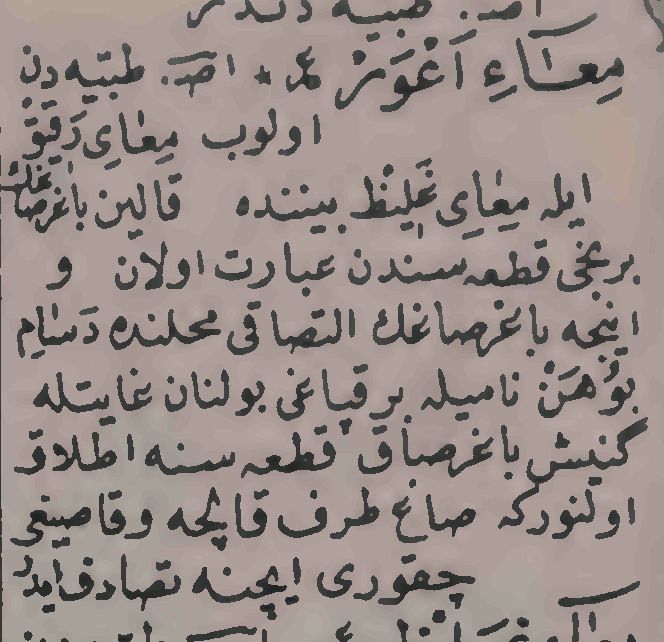 اصـ. طبیه دندر
مِعَـاءِ اَعْوَرْ عـ. اصـ. طبیه دن
اولوب مِعَایِ دَقِیقْ
ایله مِعَایِ غَلِیظْ بیننده قالین باغرصاغك
برنجی قطعه سندن عبارت اولان و
اینجه باغرصاغك التصاقی محلنده دَسَامِ
بُوْهَنْ نامیله بر قپاغی بولنان غایتله
گنیش باغرصاق قطعه سنه اطلاق
اولنورکه صاغ طرف قالچه وقاصیغی
چقوری ایچنه تصادف ایدر